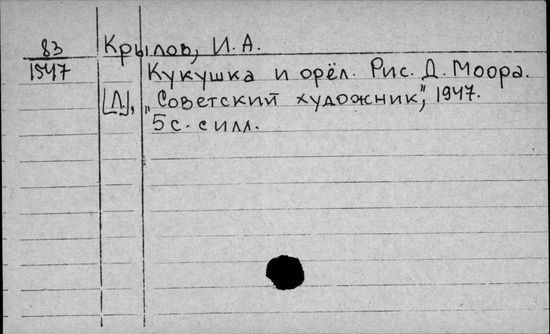 83 Крылов, И. А.
1547 Кукушка и орёл. Рис. Д. Моора.
[Л], „Советский художник“, 1947.
5 с. с илл.